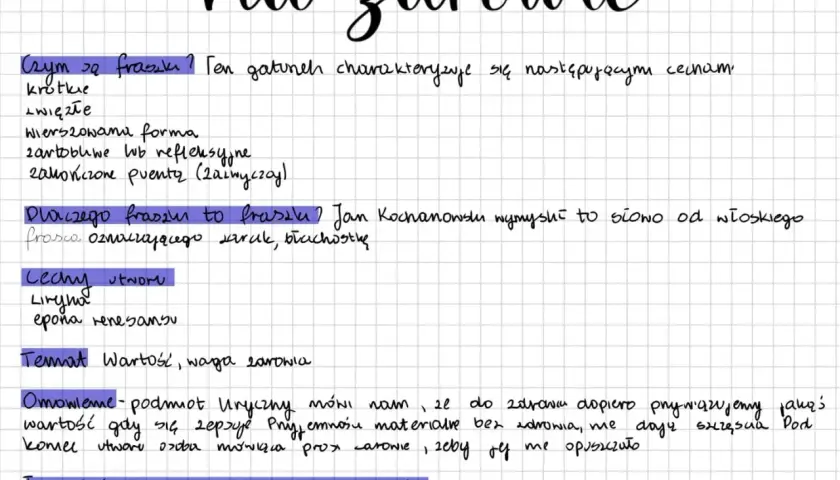 na zdrowie
Czym są fraszki? Ten gatunek charakteryzuje się następującymi cechami
krótkie
zwięzłe
wierszowana forma
żartobliwe lub refleksyjne
zakończone puentą (zazwyczaj)
Dlaczego fraszki to fraszki? Jan Kochanowski wymyślił to słowo od włoskiego
frasca oznaczającego żarcik, błachostkę
Cechy utworu
Liryka
epoka renesansu
Temat Wartość, waga zdrowia
Omówienie - podmiot liryczny mówi nam, że do zdrowia dopiero przywiązujemy jakąś
wartość gdy się zepsuje Przyjemności materialne bez zdrowia, nie dają szczęścia Pod
koniec utworu osoba mówiąca prosi zdrowie, żeby jej nie opuszczało